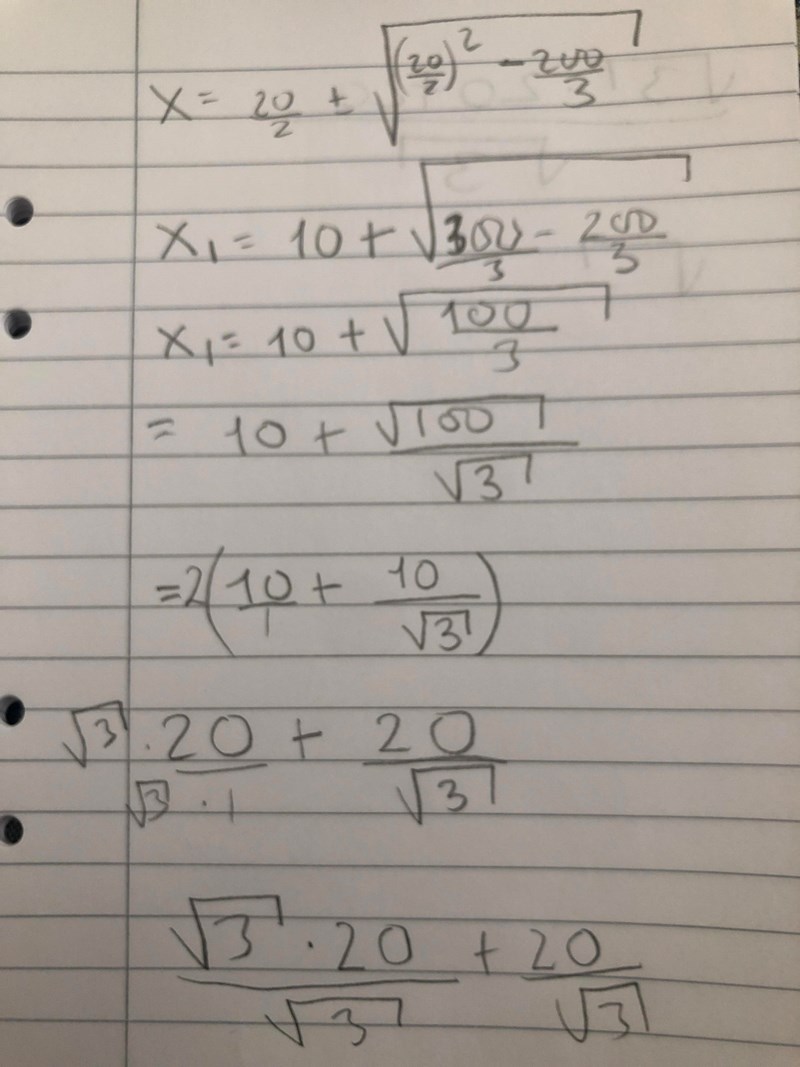 x = 20/2 ± √((20/2)² - 200/3)
x₁ = 10 + √(300/3 - 200/3)
x₁ = 10 + √(100/3)
= 10 + √100/√3
= 2(10/1 + 10/√3)
√3 · 20/√3 · 1 + 20/√3
√3 · 20/√3 + 20/√3